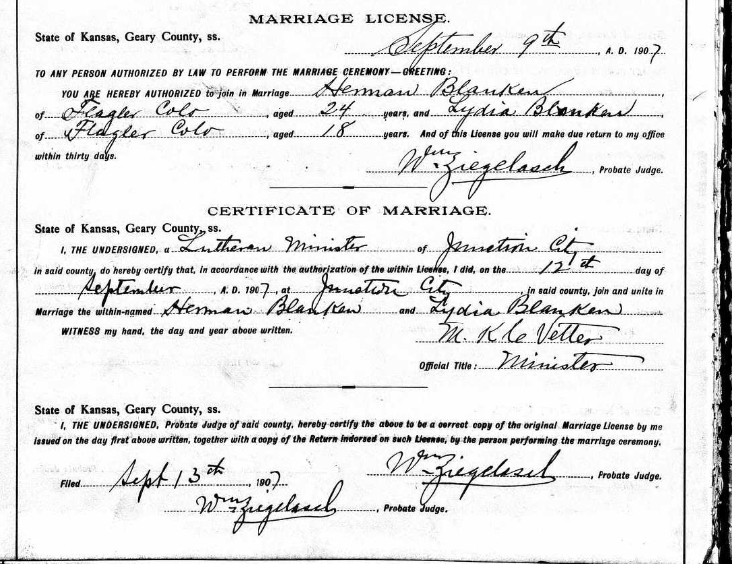 MARRIAGE LICENSE.
State of Kansas, Geary County, ss.
September 9th, A. D. 1907
TO ANY PERSON AUTHORIZED BY LAW TO PERFORM THE MARRIAGE CEREMONY—GREETING:
YOU ARE HEREBY AUTHORIZED to join in Marriage Herman Blanken,
of Flagler Colo, aged 24 years, and Lydia Blanken
of Flagler Colo, aged 18 years. And of this License you will make due return to my office
within thirty days.
Wm Ziegelasch, Probate Judge.
CERTIFICATE OF MARRIAGE.
State of Kansas, Geary County, ss.
I, THE UNDERSIGNED, a Lutheran Minister of Junction City
in said county, do hereby certify that, in accordance with the authorization of the within License, I did, on the 12th day of
September, A. D. 1907, at Junction City, in said county, join and unite in
Marriage the within-named Herman Blanken and Lydia Blanken
WITNESS my hand, the day and year above written.
M. Vetter
Official Title: Minister
State of Kansas, Geary County, ss.
I, THE UNDERSIGNED, Probate Judge of said county, hereby certify the above to be a correct copy of the original Marriage License by me
issued on the day first above written, together with a copy of the Return indorsed on such License, by the person performing the marriage ceremony.
Wm Ziegelasch, Probate Judge.
Filed Sept 13th, 1907
Wm Ziegelasch, Probate Judge.